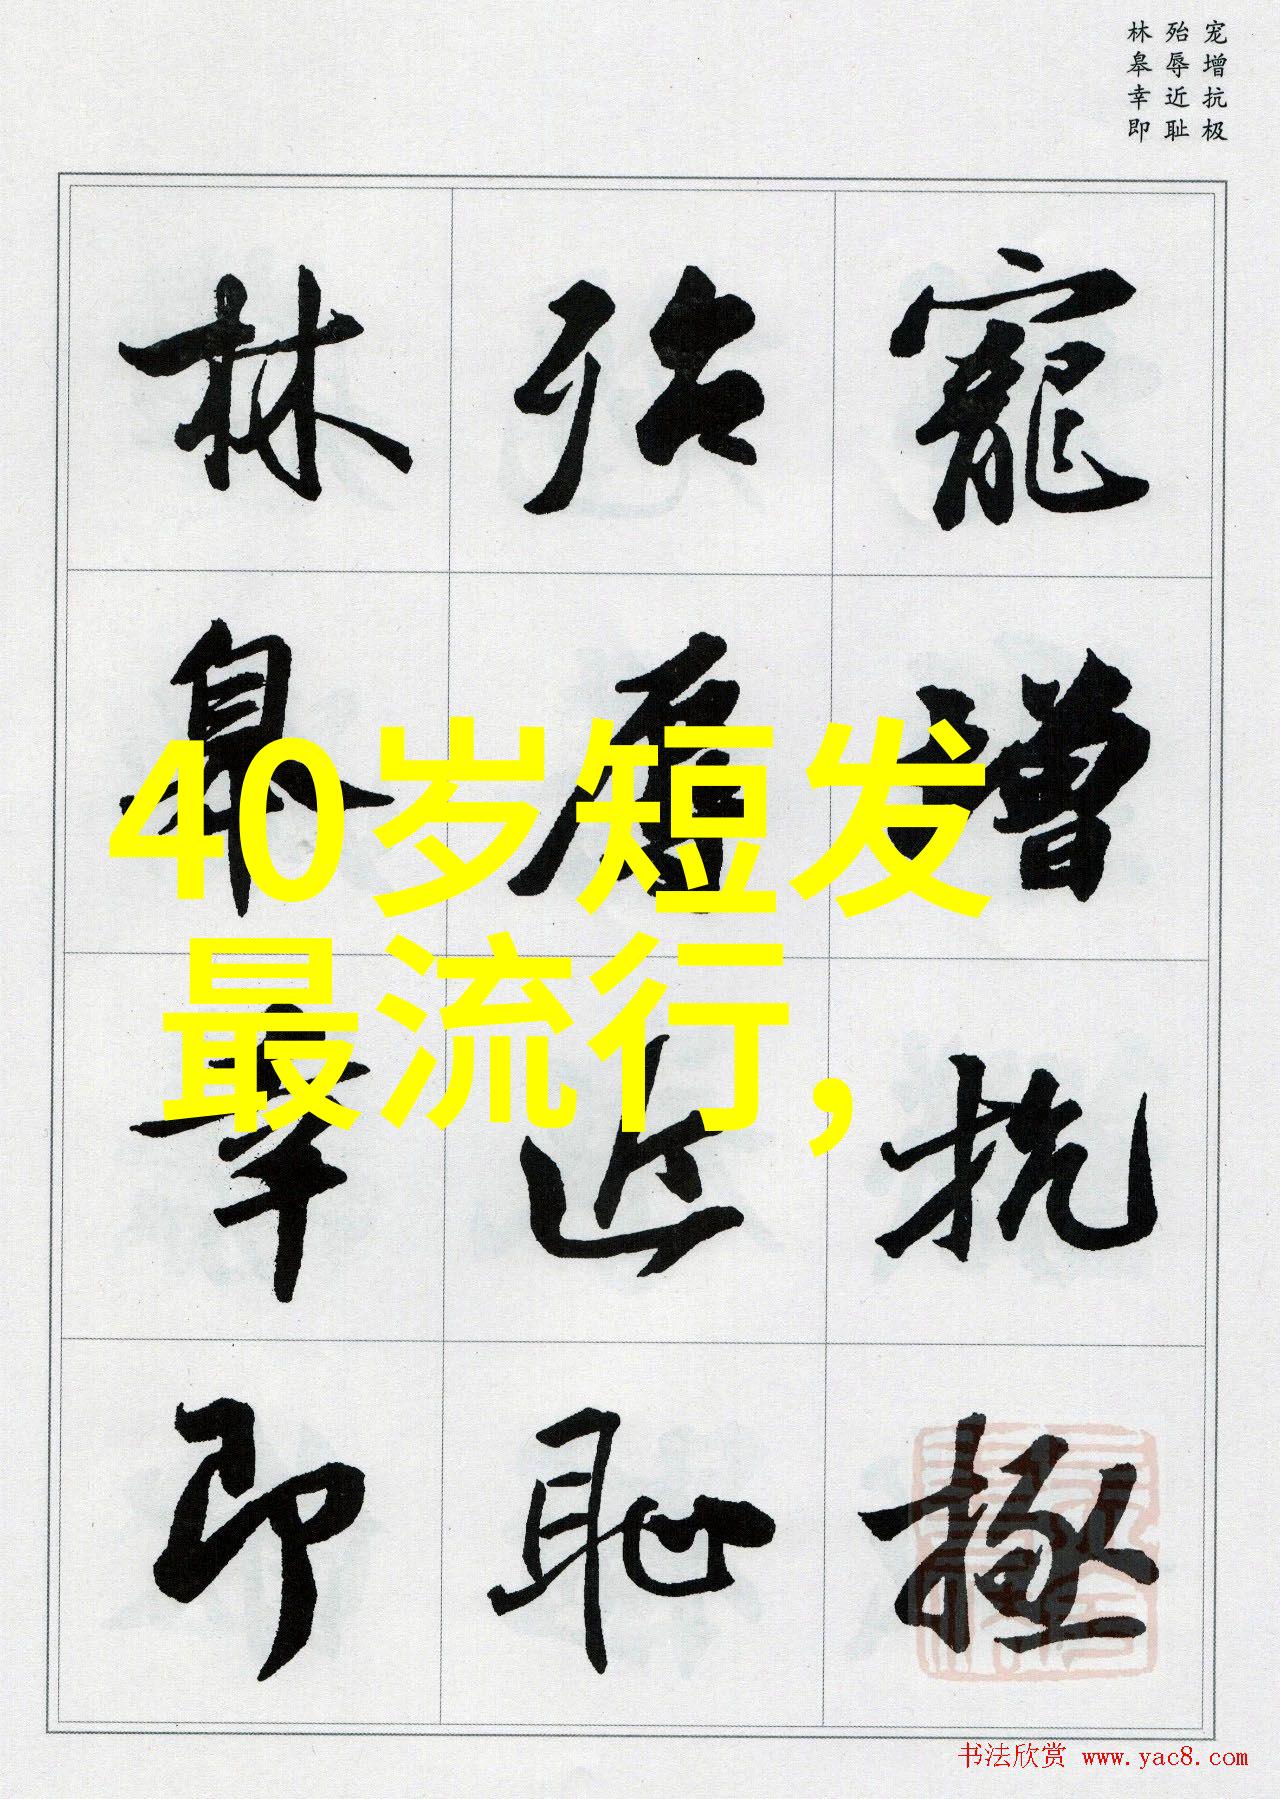 宠增抗极
殆辱近耻
林皋幸即
寵增抗極
殆辱近恥
林皋幸即
40岁短发
最流行，
书法欣赏 www.yac8.com